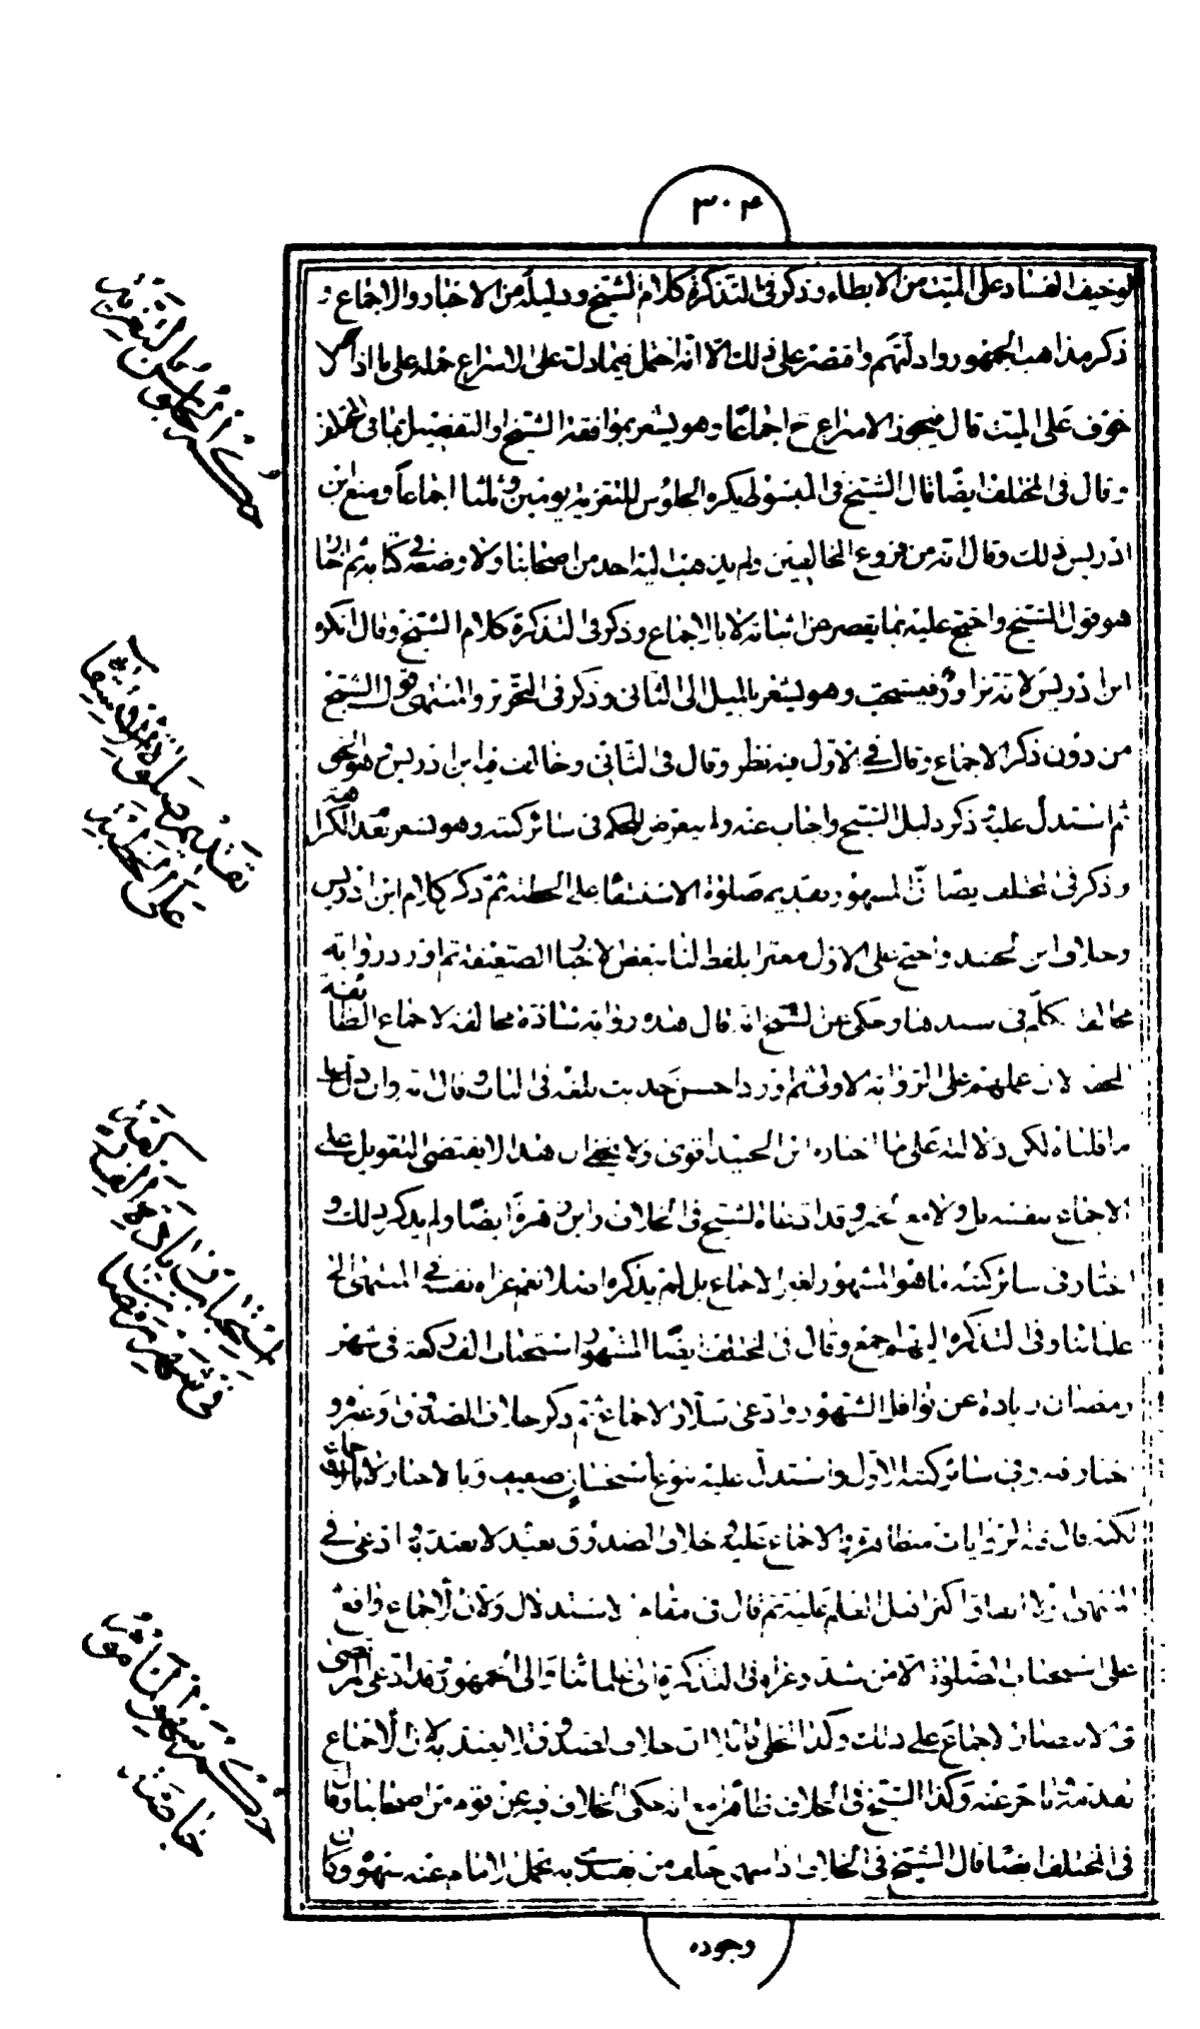 ٣٠۴
لو خيف الفساد على الميت من الابطاء وذكر فى التذكرة كلام الشيخ ودليله من الاخبار والاجماع و
ذكر مذاهب الجمهور وادلتهم واقتصر على ذلك الا انه احتمل فيما دلت على الاسراع حمله على ما اذا
خوف على الميت قال فيجوز الاسراع ح اجماعا وهو يشعر بموافقة الشيخ او التفصيل بما فى المختلف
وقال فى المختلف ايضا قال الشيخ فى المبسوط يكره الجلوس للتعزية يومين وثلثا اجماعا ومنع ابن
ادريس ذلك وقال انه من فروع المخالفين ولم يذهب اليه احد من اصحابنا ولا وضعه فى كتابه ثم اختار
هو قول الشيخ واحتج عليه بما يقصر عن اثباته الا بالاجماع وذكر فى التذكرة كلام الشيخ وقال انكره
ابن ادريس لانه تزاور فيستحب وهو يشعر بالميل الى الثانى وذكر فى التحرير والمنتهى قول الشيخ
من دون ذكر الاجماع وقال فى الاول فيه نظر وقال فى الثانى وخالف فيه ابن ادريس وهو الحق
ثم استدل عليه ذكر دليل الشيخ واجاب عنه ولم يتعرض للحكم فى سائر كتبه وهو يشعر بعدم الكراهة
وذكر فى المختلف ايضا ان المشهور تقديم صلوة الاستسقاء على الخطبة ثم ذكر كلام ابن ادريس
وخلاف ابن الجنيد واحتج على الاول معبرا بلفظ لنا ببعض الاخبار الضعيفة ثم اورد رواية
مخالفة تكلم فى سندها وحكى عن الشيخ انه قال هذه رواية شاذة مخالفة لاجماع الطائفة
المحقة لان عملهم على الرواية الاولى ثم اورد احسن حديث بلغه فى الباب وقال انه وان دل على
ما قلناه لكن دلالته على ما اختاره ابن الجنيد اقوى ولا يخفى ان هذا لا يقتضى التعويل على
الاجماع بنفسه بل ولا مع غيره وقد ادعاه الشيخ فى الخلاف وابن زهرة ايضا ولم يذكر ذلك و
اختار فى سائر كتبه ما هو المشهور لغير الاجماع بل لم يذكره اصلا نعم عزاه نفسه فى المنتهى الى
علمائنا وفى التذكرة اليهم اجمع وقال فى المختلف ايضا المشهور استحباب الف ركعة فى شهر
رمضان زيادة عن نوافل الشهور وادعى سلار الاجماع ثم ذكر خلاف الصدوق وغيره و
اختار فيه وفى سائر كتبه الاول واستدل عليه بنوع استحسان ضعيف وبالاخبار لا بالاجماع
لكنه قال فيه الروايات متظاهرة والاجماع عليه خلاف الصدوق بعيد لا يعتد به وادعى فى
المنتهى اولا اتفاق اكثر اهل العلم عليه ثم قال فى مقام الاستدلال ولان الاجماع واقع
على استحباب الصلوة الا من شذ وعزاه فى التذكرة الى علمائنا والى الجمهور وقد ادعى المرتضى
فى الانتصار الاجماع على ذلك وكذا الحلى بان خلاف الصدوق لا يعتد به لان الاجماع
تقدمه وتاخر عنه وكذا الشيخ فى الخلاف ظاهرا مع انه حكى الخلاف فيه عن قوم من اصحابنا وقال
فى المختلف ايضا قال الشيخ فى الخلاف اذا سهى خلف من يقتدى به تحمل الامام عنه سهوه وكان
وجوده
حكم الجلوس للتعزية
تقديم صلوة الاستسقاء
على الخطبة
استحباب زيادة الف ركعة
فى شهر رمضان
حكم سهو المأموم
خاصة